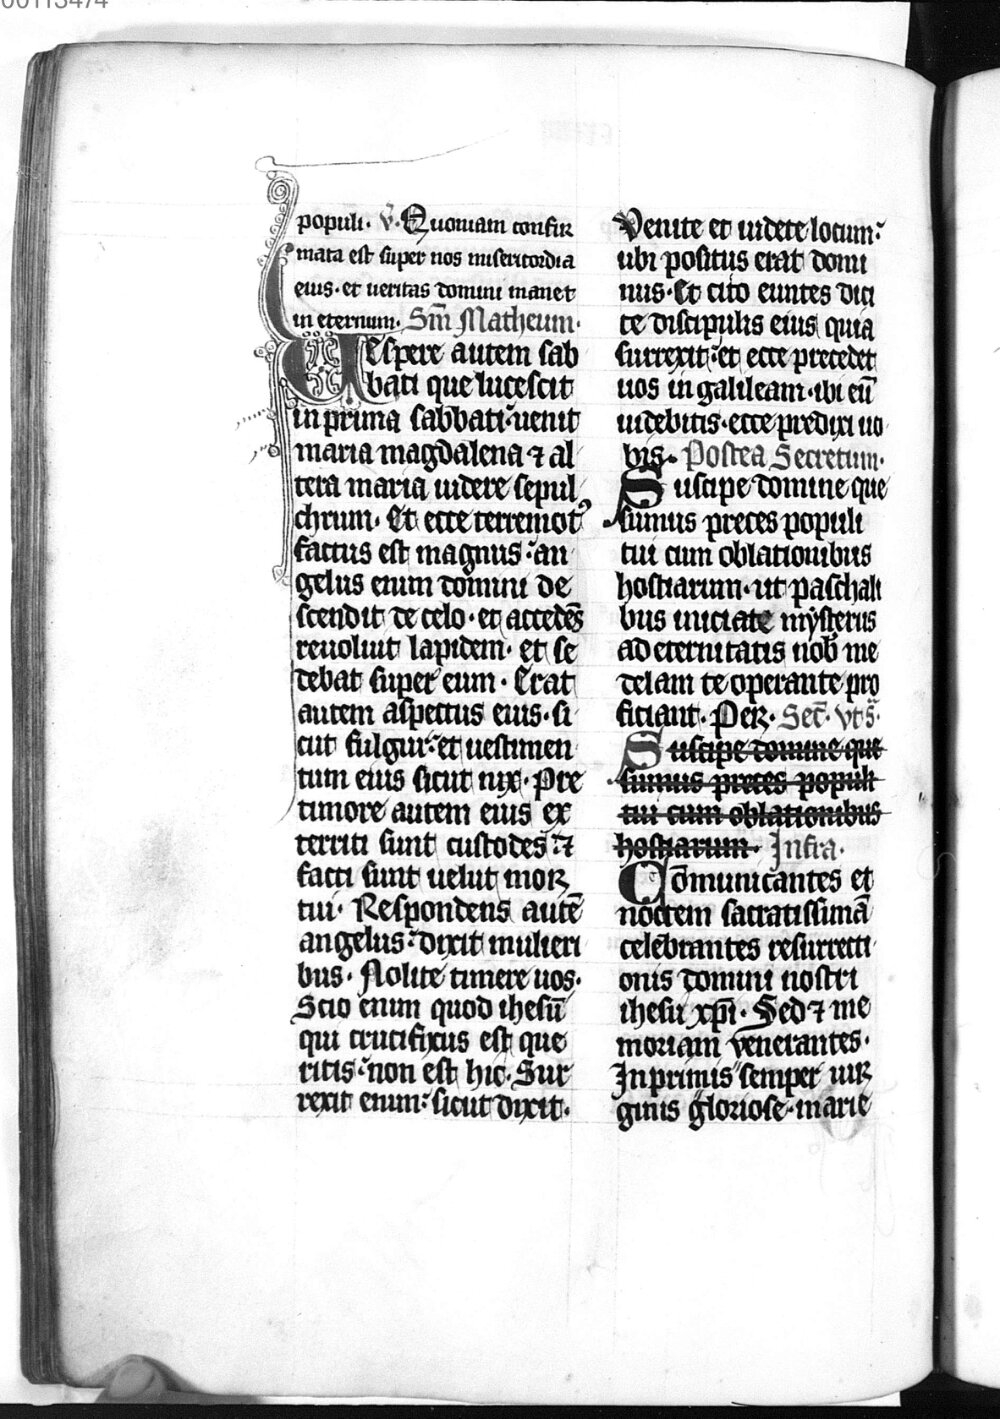 00113474
populi. v. Quoniam confir
mata est super nos misericordia
eius. et ueritas domini manet
in eternum. Sm̄ Matheum.
Uespere autem sab
bati que lucescit
in prima sabbati: uenit
maria magdalena ⁊ al
tera maria uidere sepul
chrum. Et ecce terremotꝰ
factus est magnus: an
gelus enim domini de
scendit de celo. et accedēs
reuoluit lapidem. et se
debat super eum. Erat
autem aspectus eius. si
cut fulgur: et uestimen
tum eius sicut nix. Pre
timore autem eius ex
territi sunt custodes: ⁊
facti sunt uelut mor
tui. Respondens autē
angelus: dixit mulieri
bus. Nolite timere uos.
Scio enim quod ihesū
qui crucifixus est que
ritis: non est hic. Sur
rexit enim: sicut dixit.
Venite et uidete locum:
ubi positus erat domi
nus. Et cito euntes dici
te discipulis eius quia
surrexit: et ecce precedet
uos in galileam. ibi eū
uidebitis. ecce predixi uo
bis. Postea Secretum.
Suscipe domine que
sumus preces populi
tui cum oblationibus
hostiarum. ut paschali
bus iniciate mysteriis
ad eternitatis nob̄ me
delam te operante pro
ficiant. Per. Secr̄. vt sᵃ.
Suscipe domine que
sumus preces populi
tui cum oblationibus
hostiarum. Infra.
Cōmunicantes et
noctem sacratissimā
celebrantes resurrecti
onis domini nostri
ihesu xp̄i. Sed ⁊ me
moriam venerantes.
Inprimis semper uir
ginis gloriose. marie